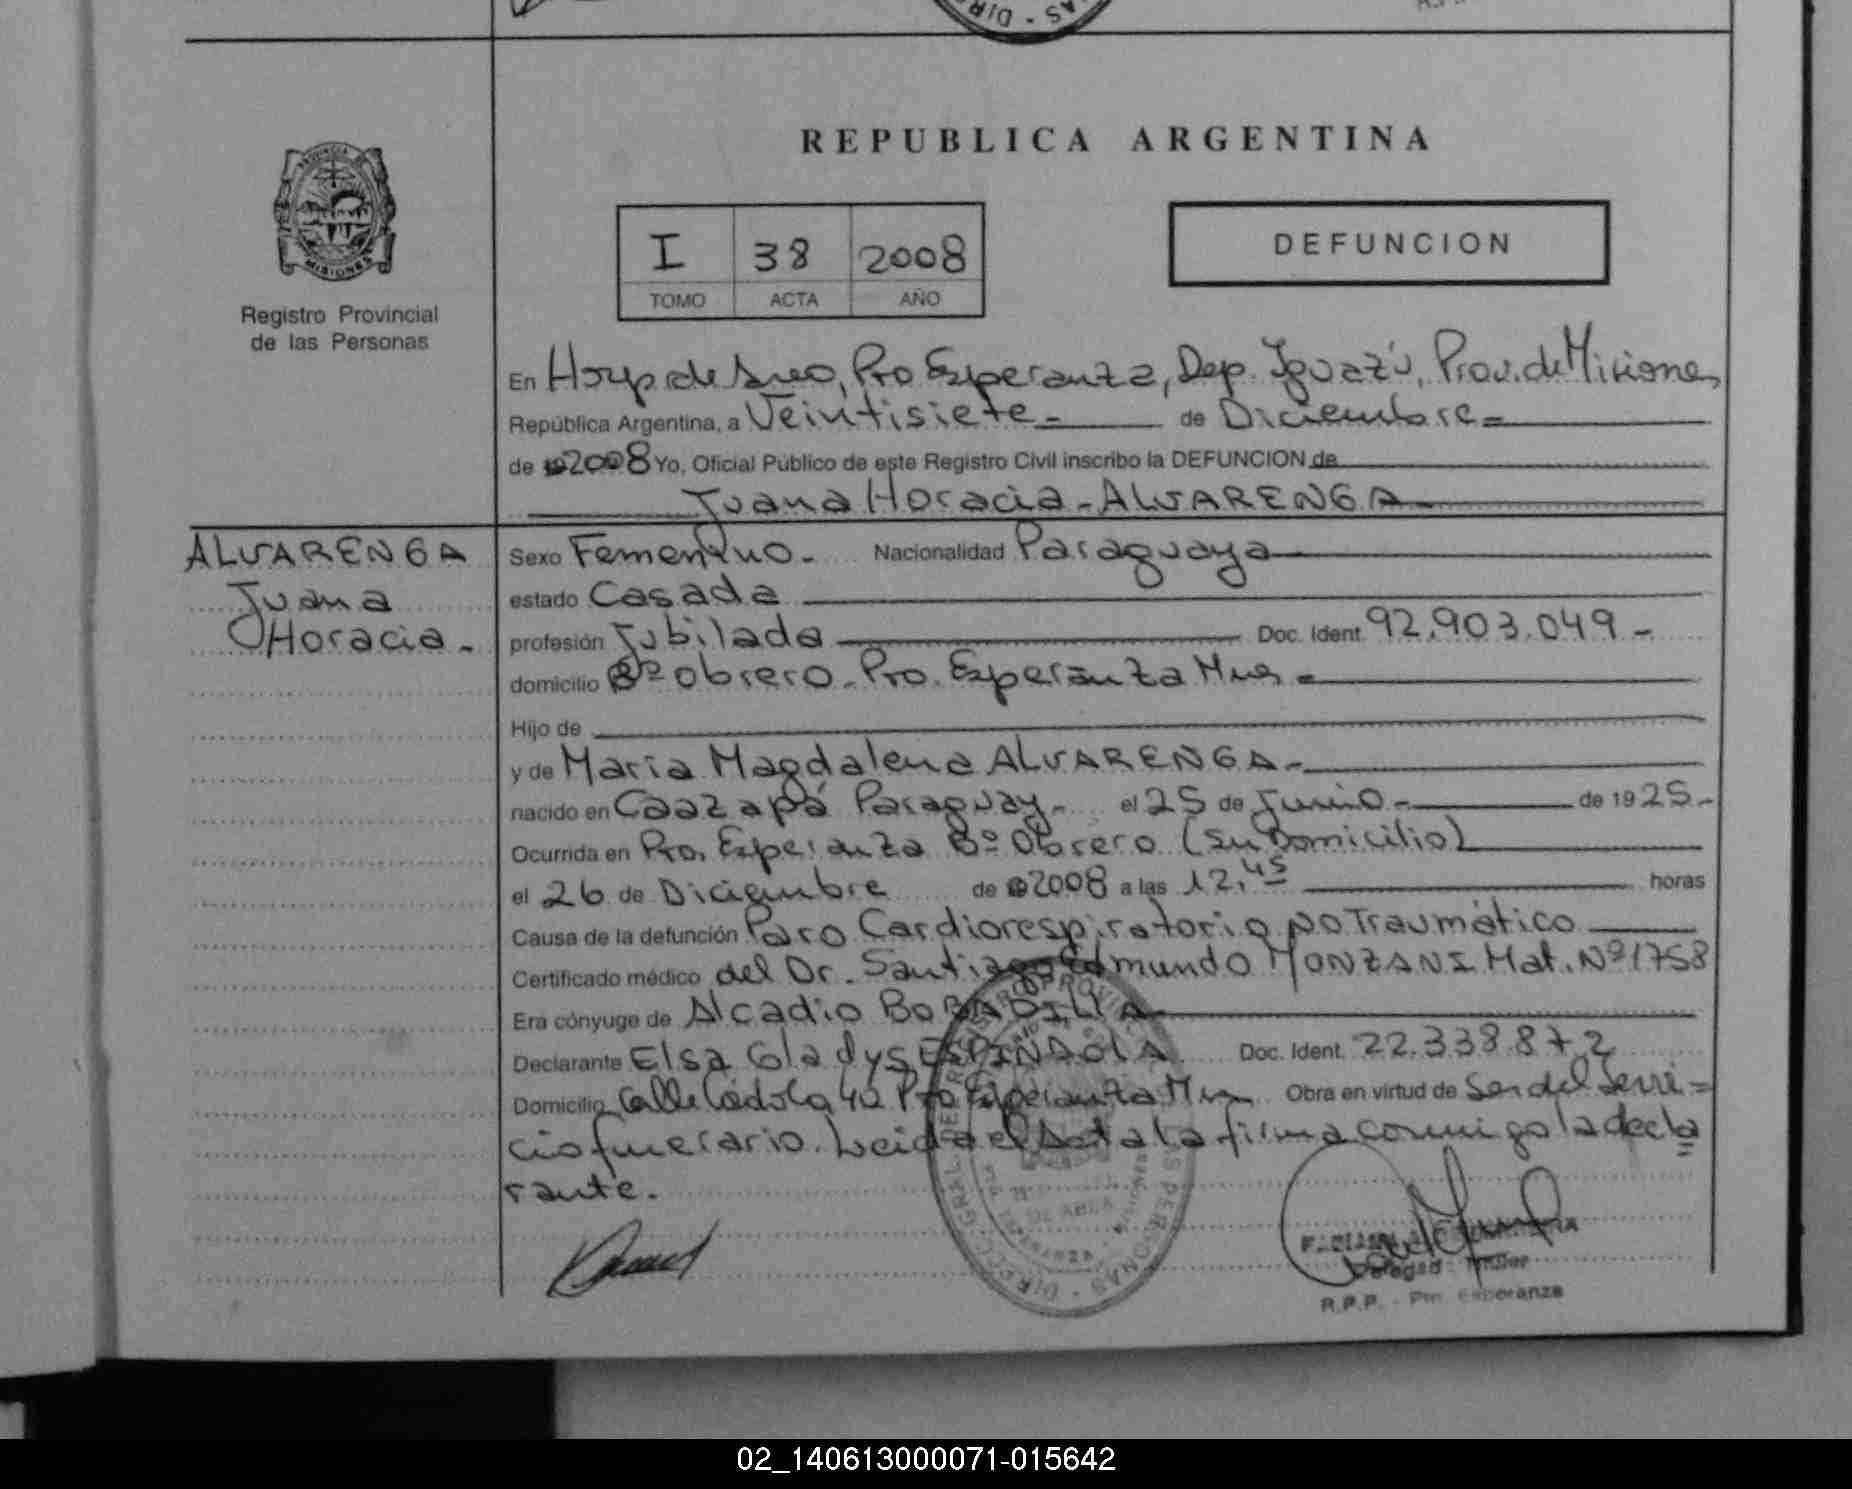 REPUBLICA ARGENTINA
I 38 2008
TOMO ACTA AÑO
DEFUNCION
MISIONES
Registro Provincial
de las Personas
En Hosp de Area, Pto Esperanza, Dep. Iguazú, Prov. de Misiones
República Argentina, a Veintisiete - de Diciembre =
de 2008 Yo, Oficial Público de este Registro Civil inscribo la DEFUNCION de
Juana Horacia - ALVARENGA
ALVARENGA
Juana
Horacia -
Sexo Femenino - Nacionalidad Paraguaya
estado Casada
profesión Jubilada Doc. Ident. 92.903.049 -
domicilio Bº Obrero - Pto. Esperanza Mnes =
Hijo de
y de Maria Magdalena ALVARENGA -
nacido en Caazapá Paraguay - el 25 de Junio - de 1925 -
Ocurrida en Pto. Esperanza Bº Obrero (su Domicilio)
el 26 de Diciembre de 2008 a las 12,45 horas
Causa de la defunción Paro Cardiorespiratorio no Traumático
Certificado médico del Dr. Santiago Edmundo MONZANI Mat. Nº 1758
Era cónyuge de Alcadio BOBADILLA
Declarante Elsa Gladys ESPINDOLA Doc. Ident. 22.338.872
Domicilio Calle Córdoba 40 Pto Esperanza Mnes Obra en virtud de Ser del Servi =
cio funerario. Leida el Acta la firma conmigo la decla
rante.
Delegad Titular
R.P.P. - Pto. Esperanza
02_140613000071-015642